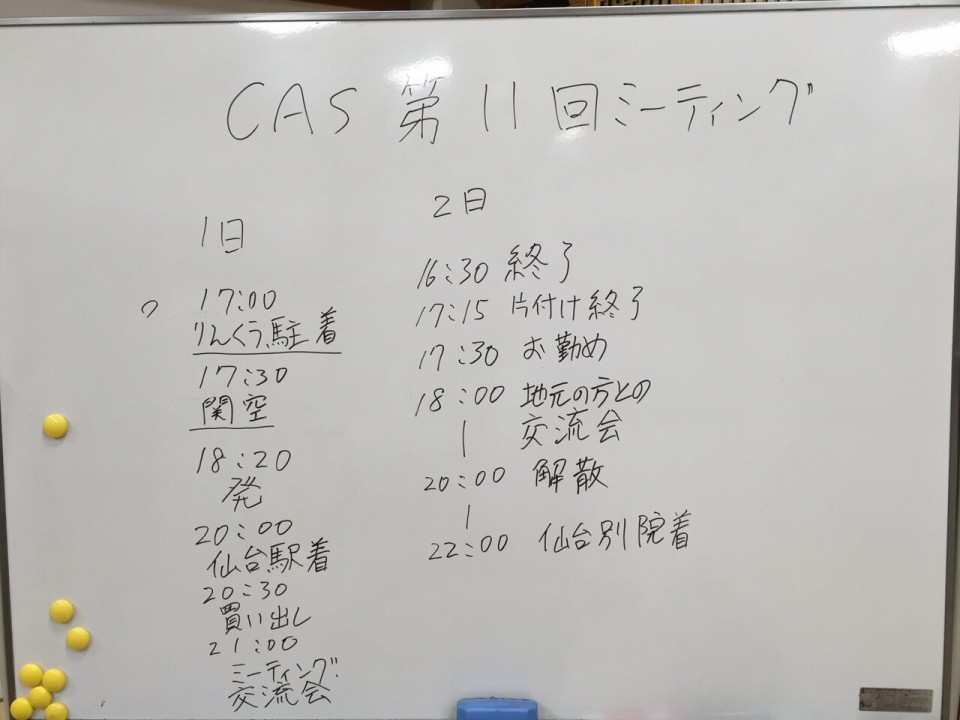 CAS 第11回ミーティング
1日
17:00
りんくう駐着
17:30
関空
18:20
発
20:00
仙台駅着
20:30
買い出し
21:00
ミーティング
交流会
2日
16:30 終了
17:15 片付け終了
17:30 お勤め
18:00 地元の方との
| 交流会
20:00 解散
|
22:00 仙台別院着